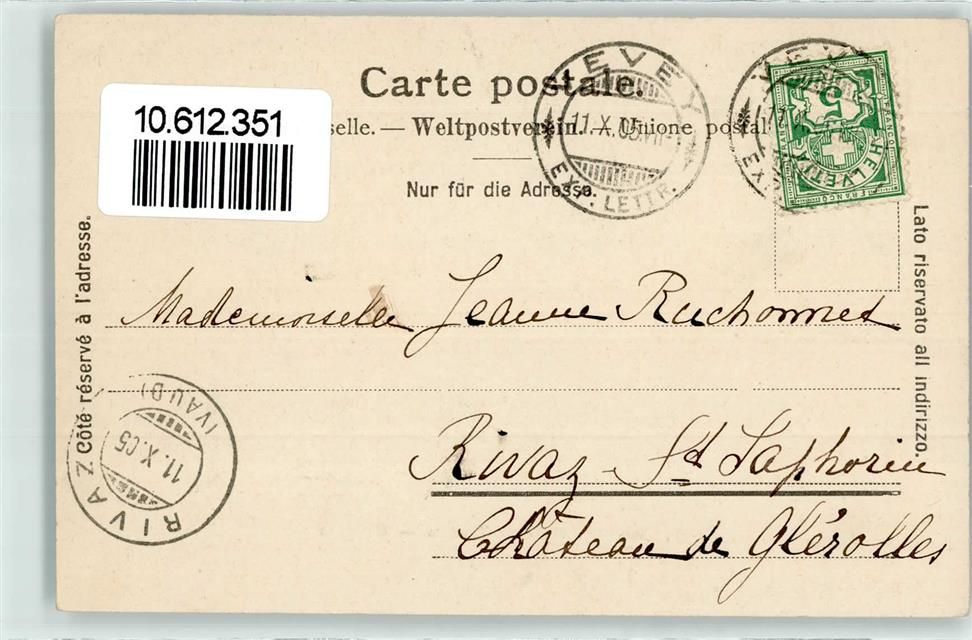 Carte postale.
10.612.351
selle. — Weltpostverein. — Unione postal
Nur für die Adresse.
VEVEY
11.X.05.VII
EXP. LETTR.
VEVEY
5
HELVETIA
FRANCO
Côté réservé à l'adresse.
Lato riservato all indirizzo.
Mademoiselle Jeanne Ruchonnet
Rivaz - St Saphorin
Château de Glérolles
RIVAZ
11.X.05
(VAUD)